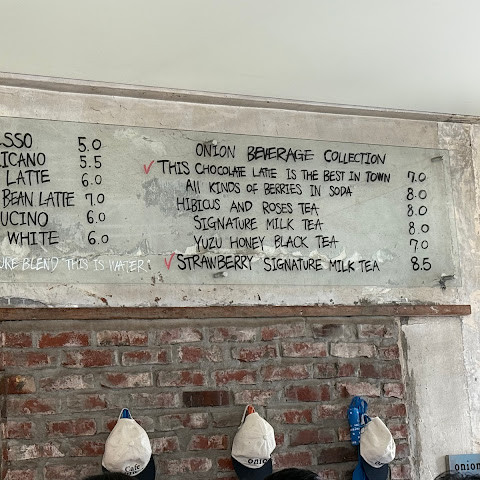 SSO 5.0
ICANO 5.5
LATTE 6.0
BEAN LATTE 7.0
UCINO 6.0
WHITE 6.0
URE BLEND THIS IS WATER
ONION BEVERAGE COLLECTION
THIS CHOCOLATE LATTE IS THE BEST IN TOWN 7.0
All KINDS OF BERRIES IN SODA 8.0
HIBICUS AND ROSES TEA 8.0
SIGNATURE MILK TEA 8.0
YUZU HONEY BLACK TEA 7.0
STRAWBERRY SIGNATURE MILK TEA 8.5
Cafe
onion
onion